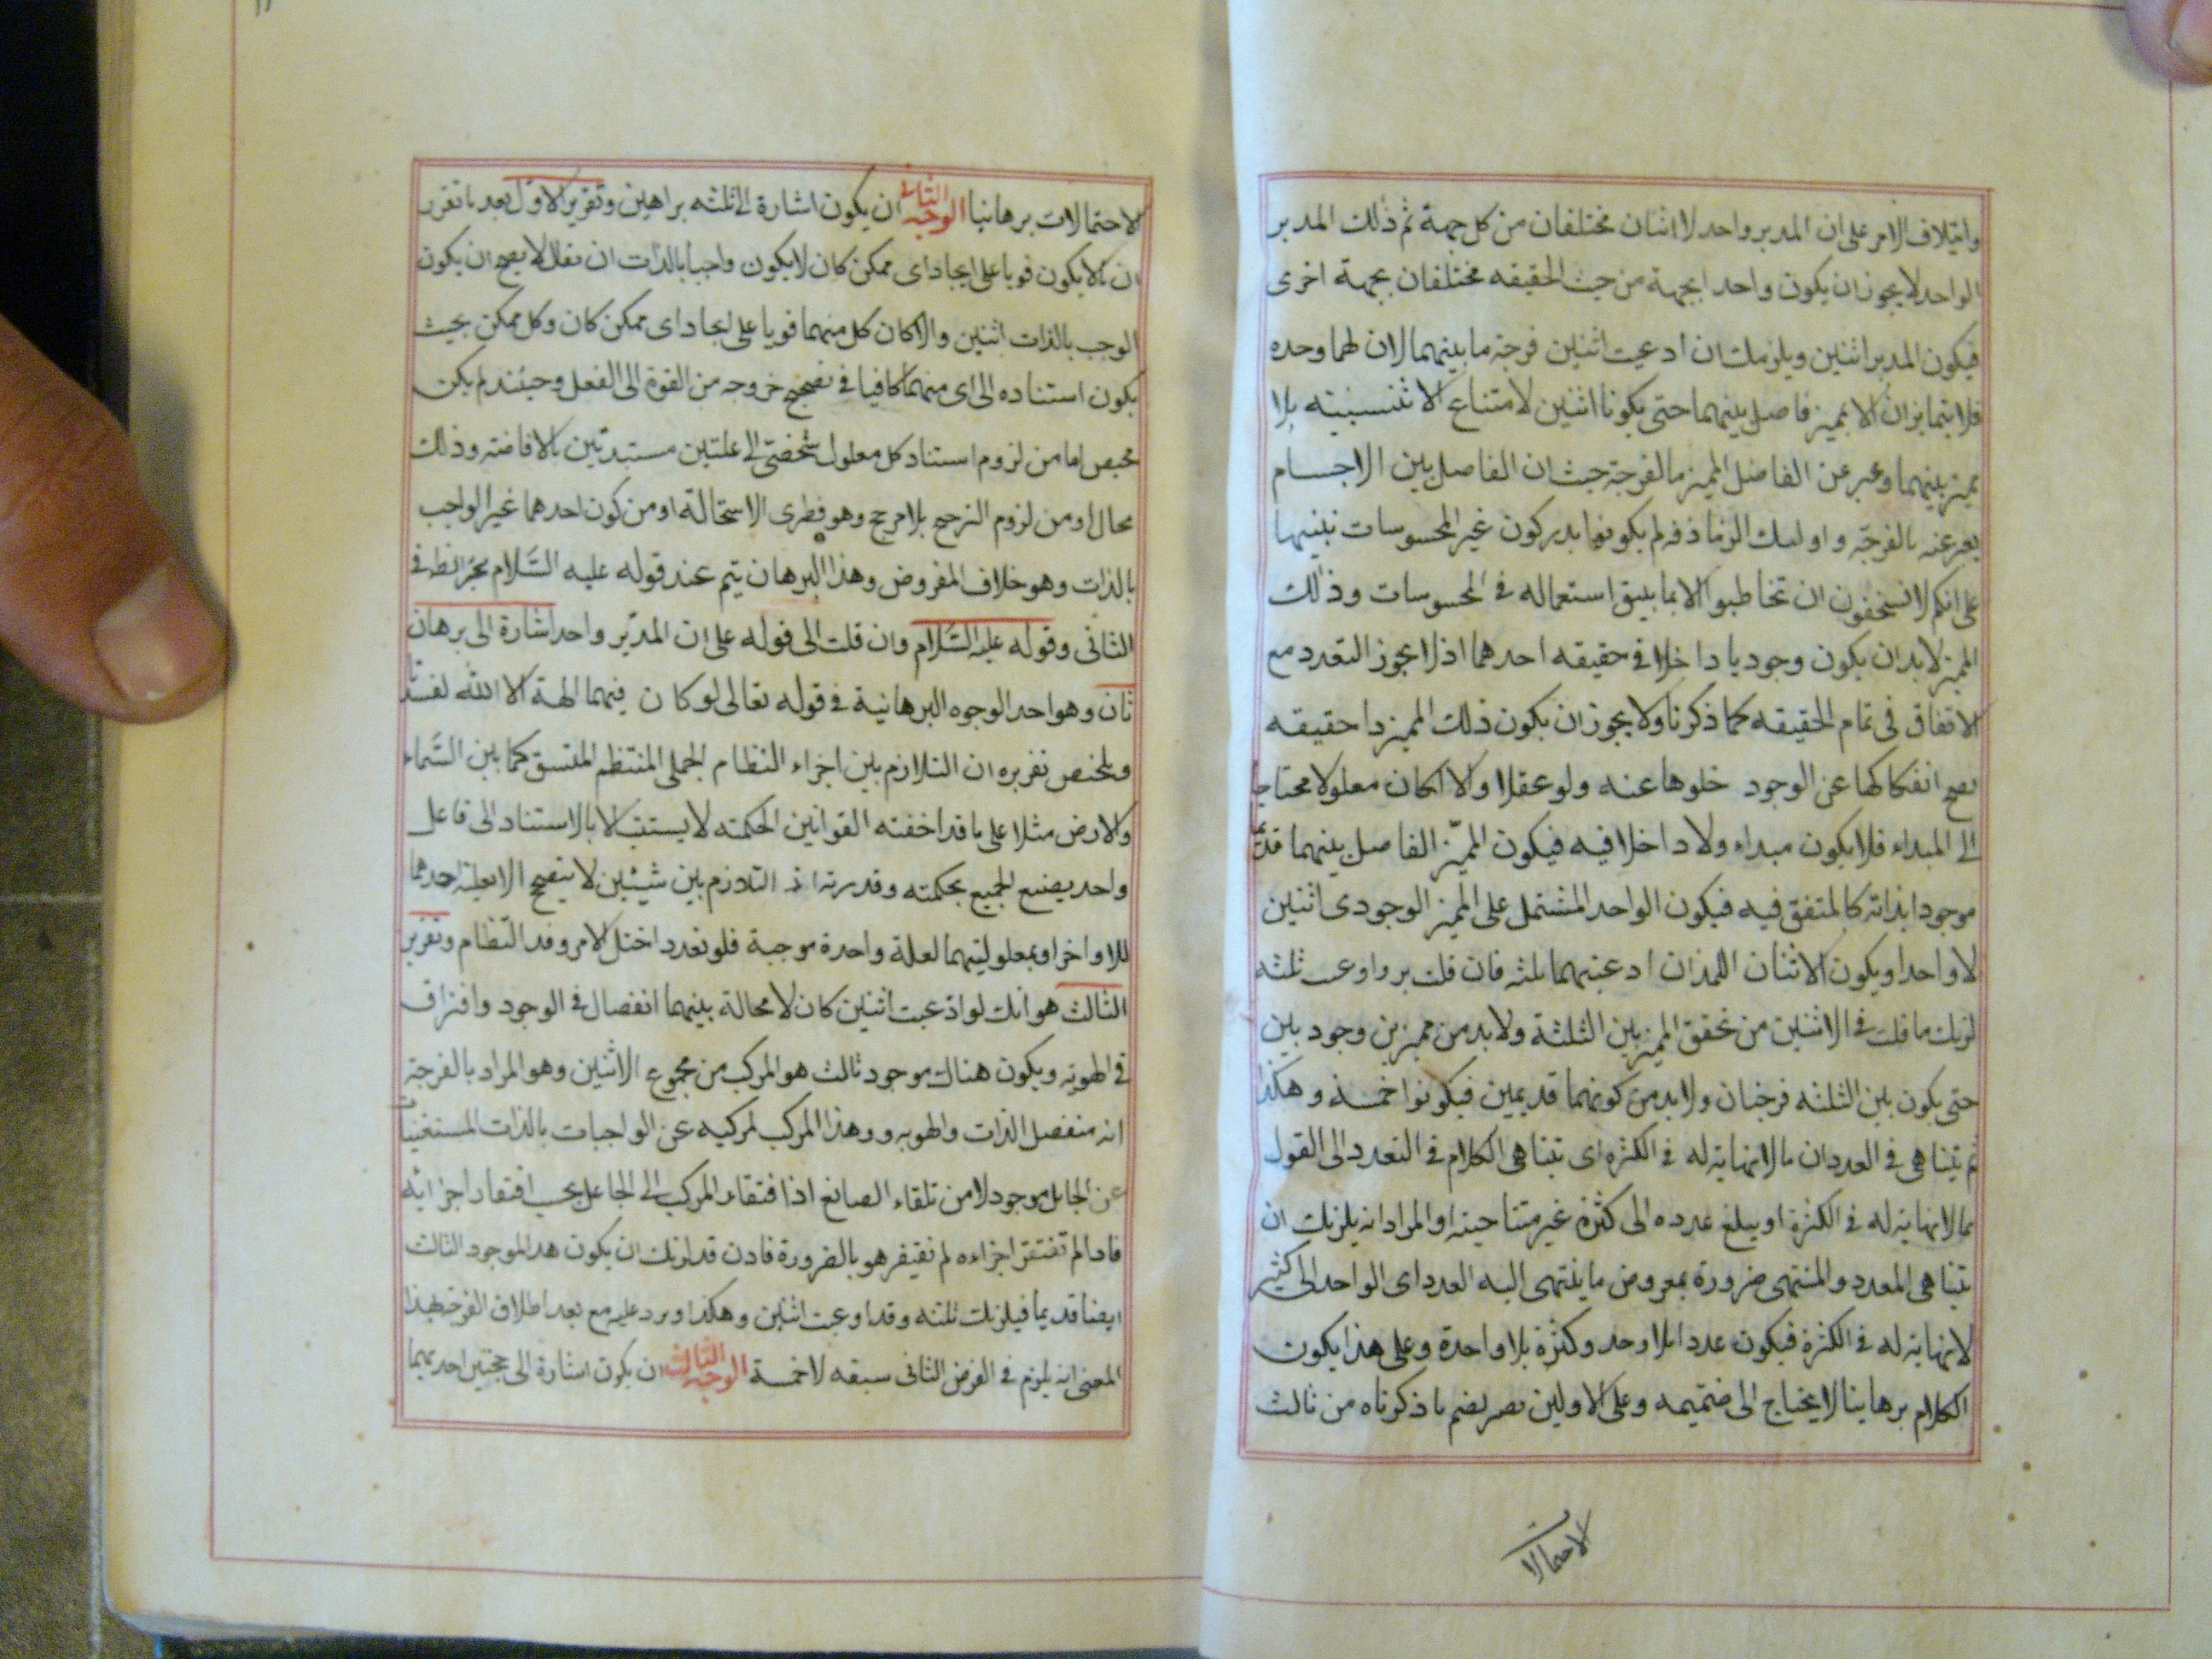 وايتلاف الامر على ان المدبر واحد لا اثنان مختلفان من كل جهة ثم ذلك المدبر
الواحد لا يجوز ان يكون واحدا بجهة من حيث الحقيقه مختلفان بجهة اخرى
فيكون المدبر اثنين ويلزمك ان ادعيت اثنين فرجة ما بينهما لان لهما وحده
فلا يتمايزان الا بمميز فاصل بينهما حتى يكونا اثنين لامتناع الاثنينيته بلا
مميز بينهما وعبر عن الفاصل المميز بالفرجة حيث ان الفاصل بين الاجسام
يعبر عنه بالفرجة واولئك الزنادقه لم يكونوا يدركون غير المحسوسات نبنيها
على انكم لا تستحقون ان تخاطبوا الا بما يليق استعماله في المحسوسات وذلك
المميز لا بد ان يكون وجوديا داخلا في حقيقه احدهما اذ لا يجوز التعدد مع
الاتفاق في تمام الحقيقه كما ذكرنا ولا يجوز ان يكون ذلك المميز ذا حقيقه
يصح انفكاكها عن الوجود خلوها عنه ولو عقلا والا لكان معلولا محتاجا
الى المبداء فلا يكون مبداء ولا داخلا فيه فيكون المميز الفاصل بينهما قديما
موجودا بذاته كالمتفق فيه فيكون الواحد المشتمل على المميز الوجودى اثنين
لا واحدا ويكون الاثنان اللذان ادعيتهما ثلثه فان قلت به وادعيت ثلثه
لزمك ما قلت في الاثنين من تحقق المميز بين الثلثة ولا بد من مميزين وجود بين
حتى يكون بين الثلثه فرجتان ولا بد من كونهما قديمين فيكونوا خمسة وهكذا
ثم يتناهى في العدد ان ما لا نهاية له في الكثره اى يتناهى الكلام في التعدد الى القول
بما لا نهاية له في الكثرة او يبلغ عدده الى كثرة غير متناهية او المراد انه يلزمك ان
يتناهى المعدد والمنتهى ضرورة بمعروض ما ينتهى اليه العدد اى الواحد الى كثير
لا نهاية له في الكثرة فيكون عددا بلا واحد وكثرة بلا واحدة وعلى هذا يكون
الكلام برهانيا لا يحتاج الى ضميمه وعلى الاولين يصير بضم ما ذكرناه من ثالث
الاحتمالات
الاحتمالات برهانيا الوجه الثانى ان يكون اشارة الى ثلثه براهين وتقرير الاول بعد ما تقرر
ان ما لا يكون قويا على ايجاد اى ممكن كان لا يكون واجبا بالذات ان نقل لا يصح ان يكون
الوجب بالذات اثنين والا كان كل منهما قويا على ايجاد اى ممكن كان وكل ممكن بحيث
يكون استناده الى اى منهما كافيا في تصحيح خروجه من القوة الى الفعل وحينئذ لم يكن
محيص اما من لزوم استناد كل معلول شخصى الى علتين مستبدتين بالافاضة وذلك
محال او من لزوم الترجيح بلا مرجح وهو فطرى الاستحالة او من كون احدهما غير الواجب
بالذات وهو خلاف المفروض وهذا البرهان يتم عند قوله عليه السلام للعجز الظاهر في
الثانى وقوله عليه السلام وان قلت الى قوله على ان المدبر واحد اشارة الى برهان
ثان وهو احد الوجوه البرهانية في قوله تعالى لو كان فيهما الهة الا الله لفسدتا
ويلخص تقريره ان التلازم بين اجزاء النظام الجملى المنتظم المتسق كما بين السماء
والارض مثلا على ما قد احقته القوانين الحكمته لا يستتب الا بالاستناد الى فاعل
واحد يصنع الجميع بحكمته وقدرته اذ التلازم بين شيئين لا يتصحح الا بعلية احدهما
للاواخر او بمعلوليتهما لعلة واحدة موجبة فلو تعدد اختل الامر وفسد النظام وتقرير
الثالث هو انك لو ادعيت اثنين كان لا محالة بينهما انفصال في الوجود وافتراق
في الهويه ويكون هناك موجود ثالث هو المركب من مجموع الاثنين وهو المراد بالفرجة
انه منفصل الذات والهويه وهذا المركب لتركيبه عن الواجبات بالذات المستغنيات
عن الجاعل موجود لا من تلقاء الصانع اذ افتقار المركب الى الجاعل بحسب افتقار اجزائه
فاذا لم تفتقر اجزاءه لم يفتقر هو بالضرورة فاذن قد لزمك ان يكون هذا الموجود الثالث
ايضا قديما فيلزمك ثلثه وقد ادعيت اثنين وهكذا ويرد عليه مع بعد اطلاق الفرجة بهذا
المعنى انه يلزم في الفرض الثانى سبعه لا خمسة الوجه الثالث ان يكون اشارة الى حجتين احديهما